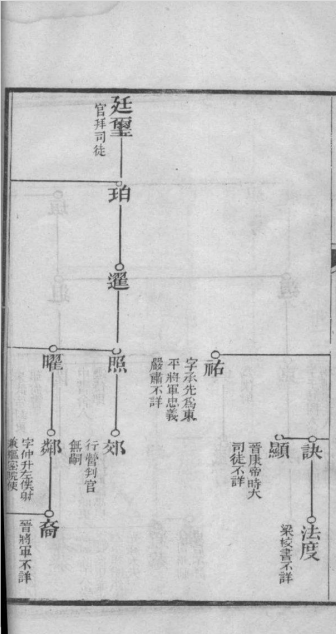 訣
法度
梁校書不詳
顯
晉康帝時大
司徒不詳
祐
字承先爲東
平將軍忠義
嚴肅不詳
廷璽
官拜司徒
珀
暹
照
郊
行營判官
無嗣
曜
鄰
字仲升左僕射
兼樞密院使
裔
晉將軍不詳